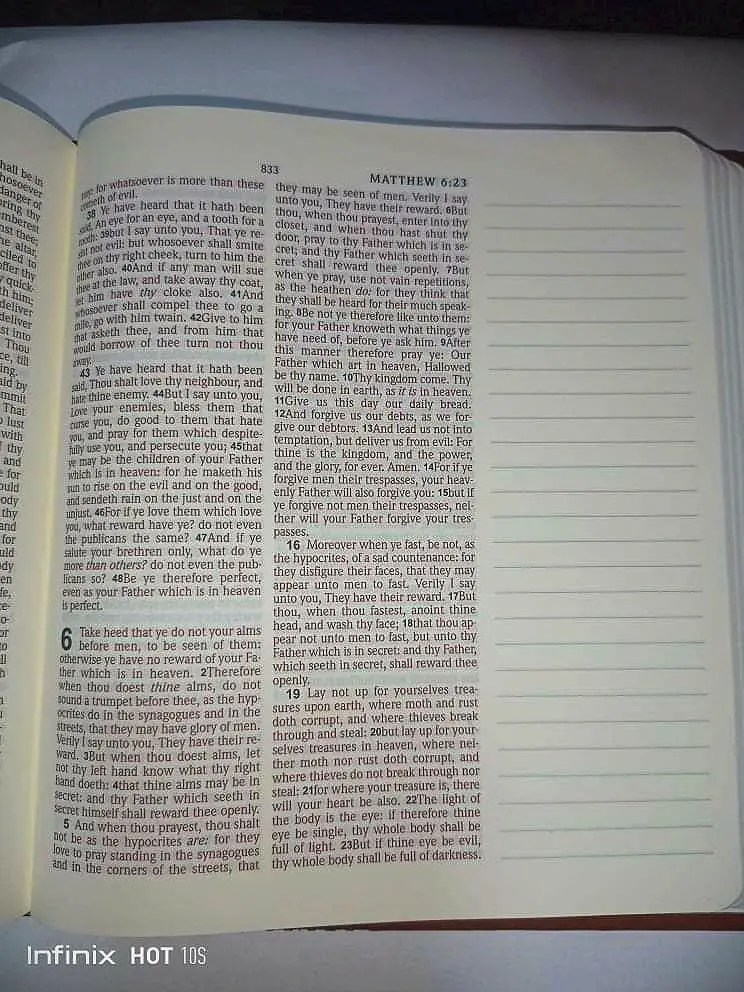 833
MATTHEW 6:23
hall be in
hosoever
danger of
ring thy
mberest
nst thee;
he altar,
ciled to
offer thy
quick-
th him;
deliver
deliver
st into
Thou
ce, till
ing.
aid by
mmit
That
lust
with
thy
and
for
ould
ody
thy
and
for
uld
dy
en
fe,
for whatsoever is more than these
cometh of evil.
38 Ye have heard that it hath been
said, An eye for an eye, and a tooth for a
tooth: 39but I say unto you, That ye re-
sist not evil: but whosoever shall smite
thee on thy right cheek, turn to him the
other also. 40And if any man will sue
thee at the law, and take away thy coat,
let him have thy cloke also. 41And
whosoever shall compel thee to go a
mile, go with him twain. 42Give to him
that asketh thee, and from him that
would borrow of thee turn not thou
away.
43 Ye have heard that it hath been
said, Thou shalt love thy neighbour, and
hate thine enemy. 44But I say unto you,
Love your enemies, bless them that
curse you, do good to them that hate
you, and pray for them which despite-
fully use you, and persecute you; 45that
ye may be the children of your Father
which is in heaven: for he maketh his
sun to rise on the evil and on the good,
and sendeth rain on the just and on the
unjust. 46For if ye love them which love
you, what reward have ye? do not even
the publicans the same? 47And if ye
salute your brethren only, what do ye
more than others? do not even the pub-
licans so? 48Be ye therefore perfect,
even as your Father which is in heaven
is perfect.
6 Take heed that ye do not your alms
before men, to be seen of them:
otherwise ye have no reward of your Fa-
ther which is in heaven. 2Therefore
when thou doest thine alms, do not
sound a trumpet before thee, as the hyp-
ocrites do in the synagogues and in the
streets, that they may have glory of men.
Verily I say unto you, They have their re-
ward. 3But when thou doest alms, let
not thy left hand know what thy right
hand doeth: 4that thine alms may be in
secret: and thy Father which seeth in
secret himself shall reward thee openly.
5 And when thou prayest, thou shalt
not be as the hypocrites are: for they
love to pray standing in the synagogues
and in the corners of the streets, that
they may be seen of men. Verily I say
unto you, They have their reward. 6But
thou, when thou prayest, enter into thy
closet, and when thou hast shut thy
door, pray to thy Father which is in se-
cret; and thy Father which seeth in se-
cret shall reward thee openly. 7But
when ye pray, use not vain repetitions,
as the heathen do: for they think that
they shall be heard for their much speak-
ing. 8Be not ye therefore like unto them:
for your Father knoweth what things ye
have need of, before ye ask him. 9After
this manner therefore pray ye: Our
Father which art in heaven, Hallowed
be thy name. 10Thy kingdom come. Thy
will be done in earth, as it is in heaven.
11Give us this day our daily bread.
12And forgive us our debts, as we for-
give our debtors. 13And lead us not into
temptation, but deliver us from evil: For
thine is the kingdom, and the power,
and the glory, for ever. Amen. 14For if ye
forgive men their trespasses, your heav-
enly Father will also forgive you: 15but if
ye forgive not men their trespasses, nei-
ther will your Father forgive your tres-
passes.
16 Moreover when ye fast, be not, as
the hypocrites, of a sad countenance: for
they disfigure their faces, that they may
appear unto men to fast. Verily I say
unto you, They have their reward. 17But
thou, when thou fastest, anoint thine
head, and wash thy face; 18that thou ap-
pear not unto men to fast, but unto thy
Father which is in secret: and thy Father,
which seeth in secret, shall reward thee
openly.
19 Lay not up for yourselves trea-
sures upon earth, where moth and rust
doth corrupt, and where thieves break
through and steal: 20but lay up for your-
selves treasures in heaven, where nei-
ther moth nor rust doth corrupt, and
where thieves do not break through nor
steal: 21for where your treasure is, there
will your heart be also. 22The light of
the body is the eye: if therefore thine
eye be single, thy whole body shall be
full of light. 23But if thine eye be evil,
thy whole body shall be full of darkness.
Infinix HOT 10S